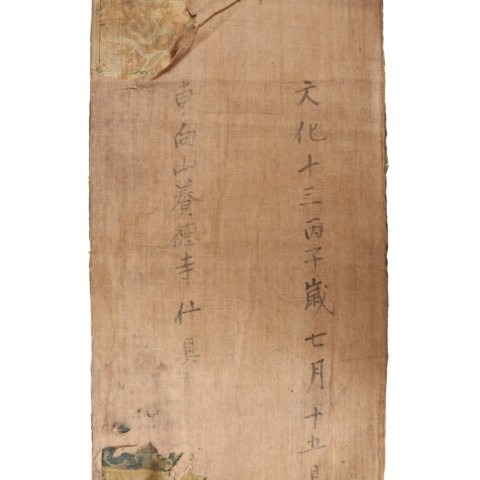 文化十三丙子歳七月十五日
東向山養德寺什具